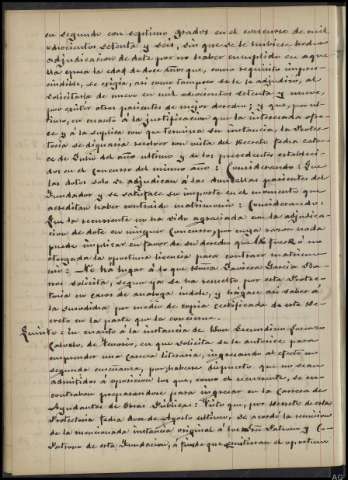 en segundo con septimo grados en el concurso de mil
ochocientos setenta y seis, sin que se le hubiese hecho
adjudicacion de dote por no haber cumplido en aque-
lla epoca la edad de doce años que, como requisito impres-
cindible, se exigia; asi como tampoco se le adjudicó, al
solicitarla de nuevo en mil ochocientos setenta y nueve,
por existir otros parientes de mejor derecho; y que, por ul-
timo, en cuanto á la justificacion que la interesada ofre-
ce y á la suplica con que termina su instancia, la Protec-
toria se dignara resolver con vista del Decreto fecha cator-
ce de Julio del año ultimo y de los precedentes estableci-
dos en el Concurso del mismo año: Considerando: Que
las dotes solo se adjudican á las doncellas parientes del
Fundador y se satisface su importe en el momento que
acreditan haber contraido matrimonio: Considerando:
Que la recurrente no ha sido agraciada con la adjudica-
cion de dote en ningun Concurso, por cuya razon nada
puede implicar en favor de su derecho que la fuese ó no
otorgada la oportuna licencia para contraer matrimo-
nio: No ha lugar á lo que Doña García Do-
solicita, segun ya se ha resuelto por esta Protec-
toria en casos de analoga indole, y hagase asi saber á
la interesada por medio de copia certificada de este De-
creto en la parte que la concierne.
Quinto: en cuanto á la instancia de Don Secundino
de en que solicita se le autorice para
emprender una carrera literaria, ingresando al efecto en
segunda enseñanza, por haberse dispuesto que no sean
admitidos á oposicion los que, como el recurrente, se en-
contraban preparandose para ingresar en la Carrera de
Ayudantes de Obras Publicas: Visto que, por Decreto de esta
Protectoria fecha doce de Agosto ultimo, se acordó la remision
de la mencionada instancia original á los Sres. Patrono y Co-
Patrono de esta Fundacion, á fin de que emitieran el oportuno
AG